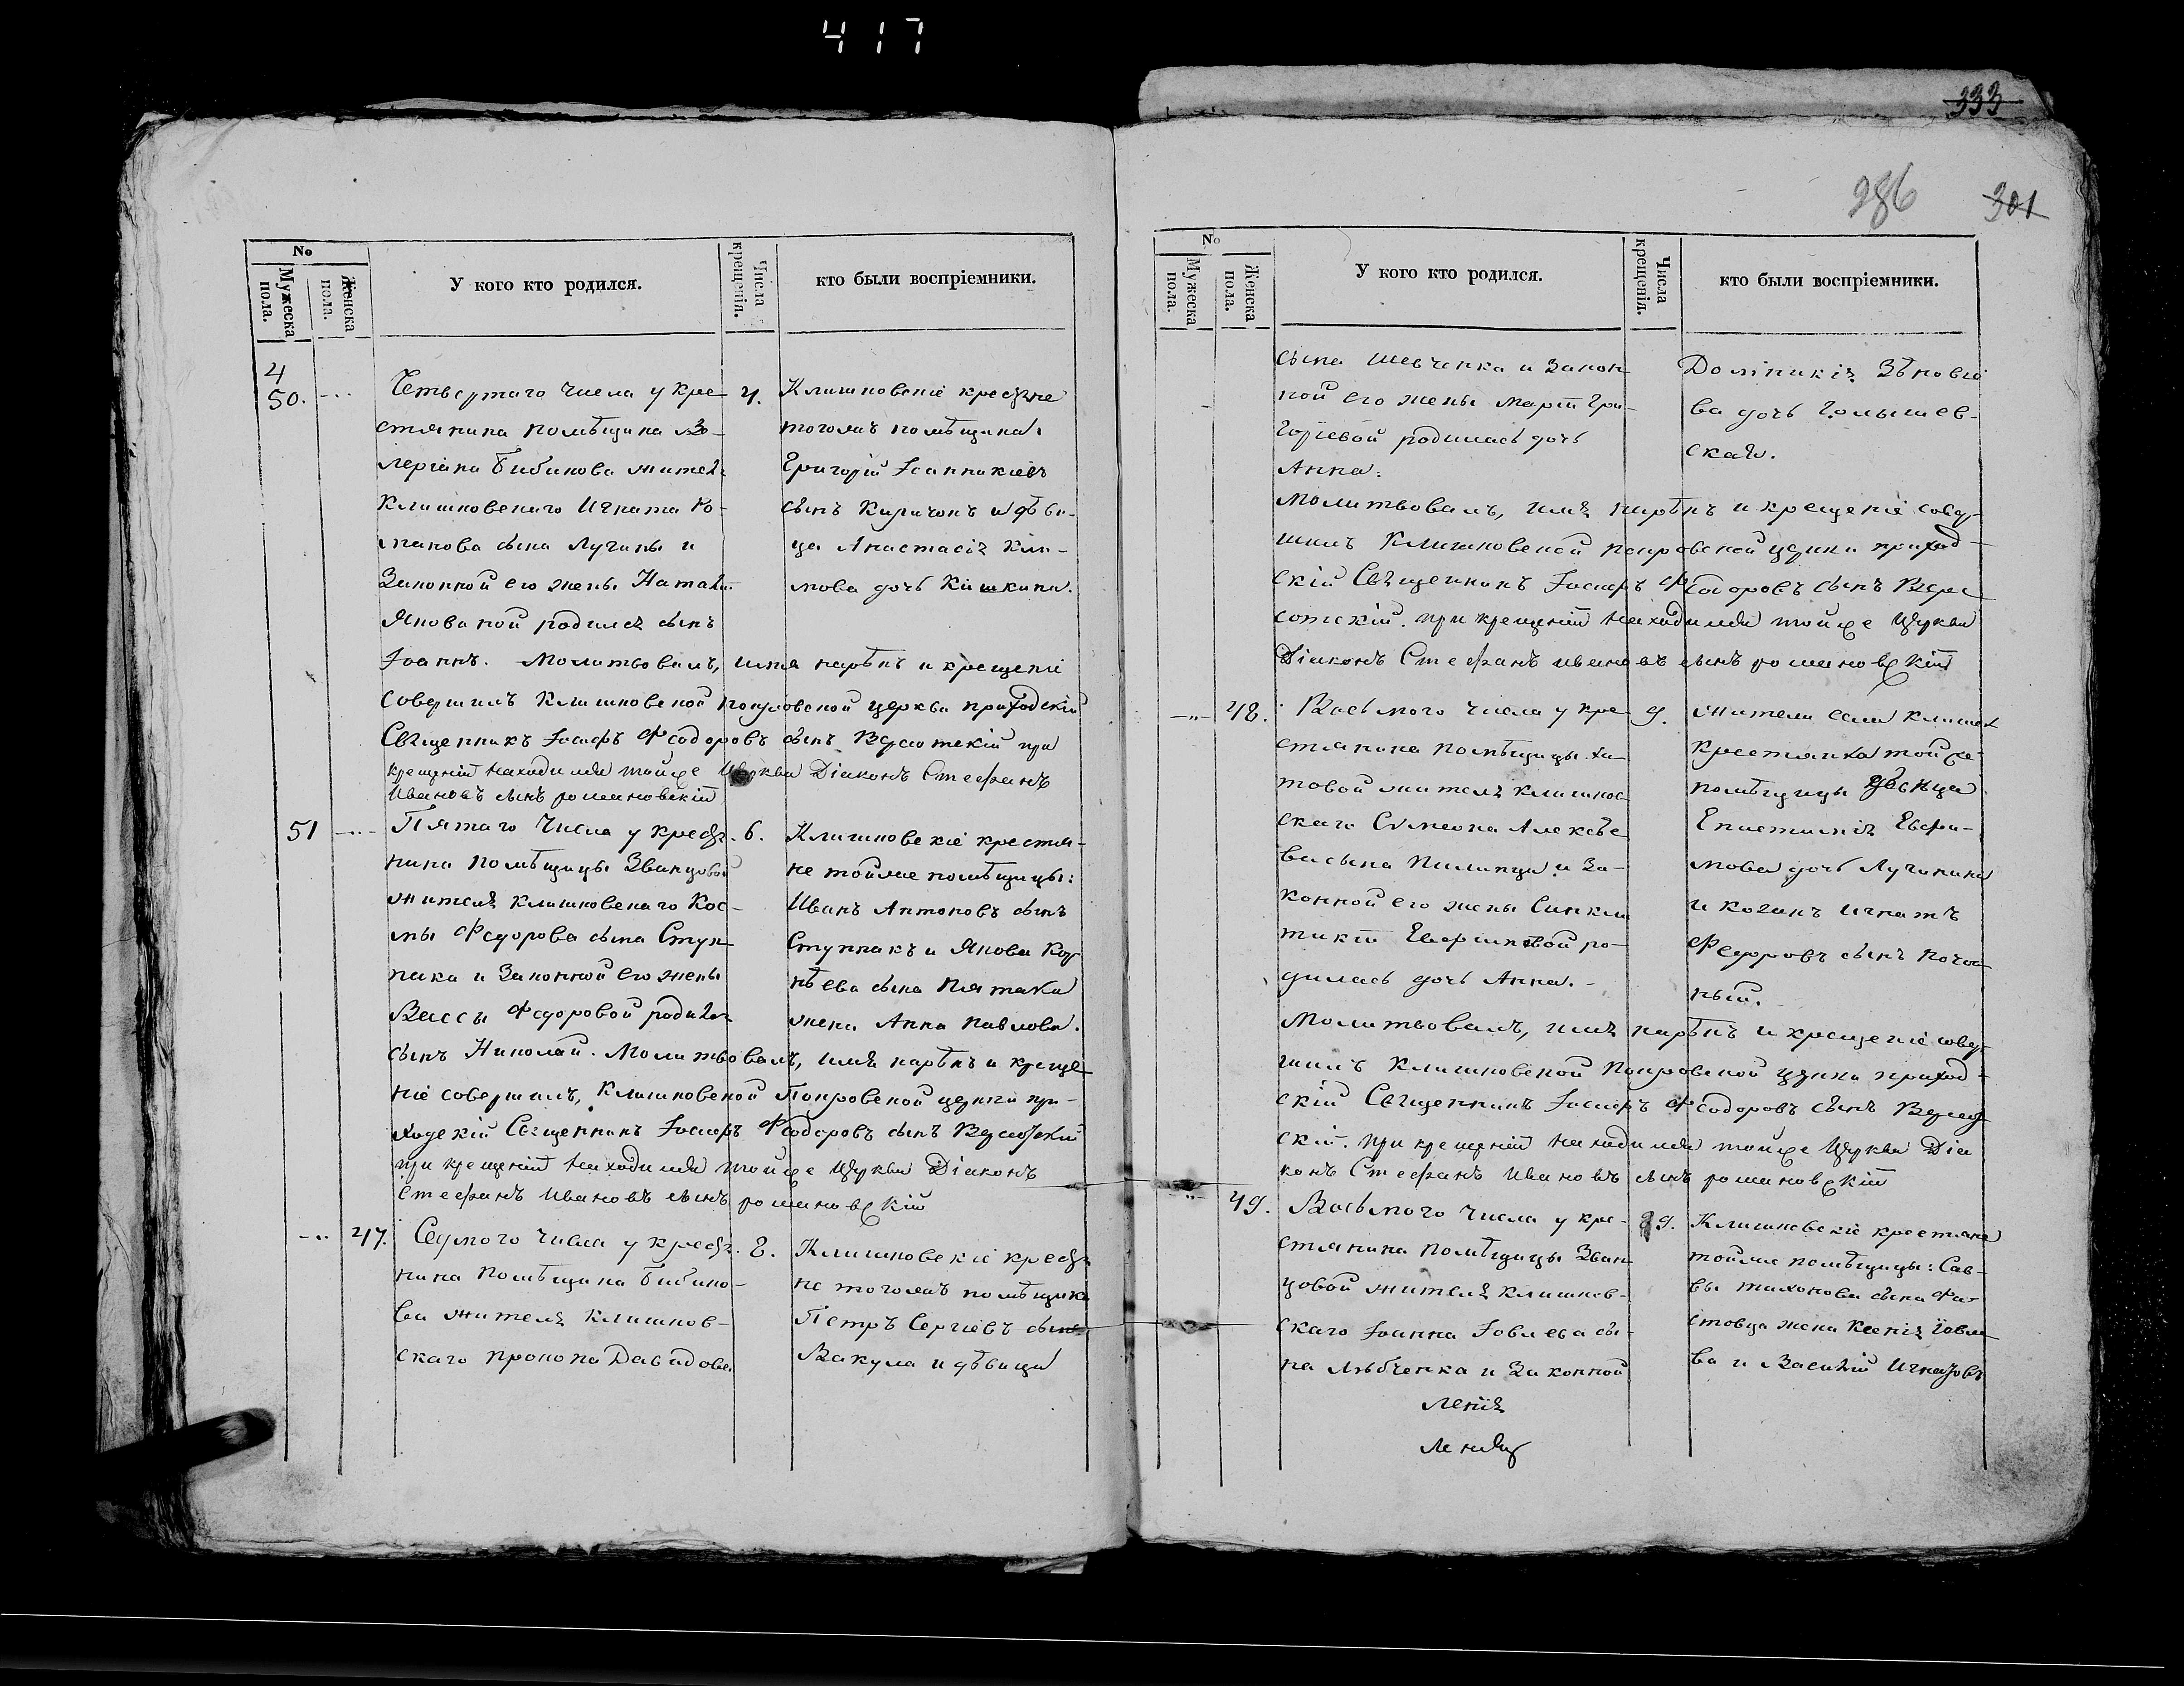 417
333
286 301
No
Мужеска пола.
Женска пола.
У кого кто родился.
Числа крещенія.
кто были воспріемники.
4
50. Четвертаго числа у кре- 4.
стянина помѣщика Ва-
леріана Бибикова жителя
Клишковскаго Игната Ро-
манова сына Лучины и
Законной его жены Наталіи
Яновиной родился сынъ
Іоаннъ. Молитвовалъ, имя нарѣкъ и крещеніе
совершилъ Клишковской покровской церкви приходскій
Священникъ Іосифъ Феодоровъ сынъ Вересотскій при
крещеніи находился тойже Церкви Діаконъ Стефанъ
Ивановъ сынъ романовскій
Клишковскіе крестяне
тогожъ помѣщика
Григорій Іоанникіевъ
сынъ Киричокъ и дѣви-
ца Анастасія Кли-
мова дочь Кишкина.
51 Пятаго Числа у крестя- 6.
нина помѣщицы Званцовой
жителя клишковскаго Кос-
мы Федорова сына Ступ-
пака и Законной его жены
Вассы Федоровой родился
сынъ Николай. Молитвовалъ, имя нарѣкъ и креще-
ніе совершилъ, Клишковской Покровской церкви при-
ходскій Священникъ Іосифъ Феодоровъ сынъ Вересотскій
при крещеніи находился тойже Церкви Діаконъ
Стефанъ Ивановъ сынъ романовскій
Клишковскіе крестя-
не тойже помѣщицы:
Иванъ Антоновъ сынъ
Ступпакъ и Якова Кор-
нѣева сына Пятака
жена Анна Павлова.
47. Седмого числа у крестя- 8.
нина Помѣщика Бибико-
ва жителя клишков-
скаго Прокопа Давидова
Клишковскіе крестя-
не тогожъ помѣщика
Петръ Сергіевъ сынъ
Вакула и дѣвица
No
Мужеска пола.
Женска пола.
У кого кто родился.
Числа крещенія.
кто были воспріемники.
сына Шевченка и Закон-
ной его жены Марѳи Гри-
горіевой родилась дочь
Анна.
Молитвовалъ, имя нарѣкъ и крещеніе совер-
шилъ Клишковской покровской церкви приход-
скій Священникъ Іосифъ Феодоровъ сынъ Вере-
сотскій. при крещеніи находился тойже Церкви
Діаконъ Стефанъ Ивановъ сынъ романовскій
Домникія Зѣновіе-
ва дочь Голышев-
ская.
48. Восьмого числа у кре- 9.
стянина помѣщицы
товой жителя клишков-
скаго Симеона Алексѣе-
ва сына Пилипца и За-
конной его жены Синкли-
тикіи Евфимовой ро-
дилась дочь Анна.
Молитвовалъ, имя нарѣкъ и крещеніе совер-
шилъ Клишковской Покровской церкви приход-
скій Священникъ Іосифъ Феодоровъ сынъ Вересот-
скій. при крещеніи находился тойже Церкви Діа-
конъ Стефанъ Ивановъ сынъ романовскій
Жители села Клишокъ
крестянка тойже
помѣщицы дѣвица
Епистимія Евфи-
мова дочь Лучинина
и козакъ Игнатъ
Федоровъ сынъ
ный.
49. Восьмого числа у кре- 9.
стянина помѣщицы Зван-
цовой жителя клишков-
скаго Іоанна Іовлева сы-
на Любченка и Законной
Клишковскіе крестяне
тойже помѣщицы: Сав-
вы Тихонова сына Фа-
стовца жена Ксенія Іовле-
ва и Василій Игнатовъ